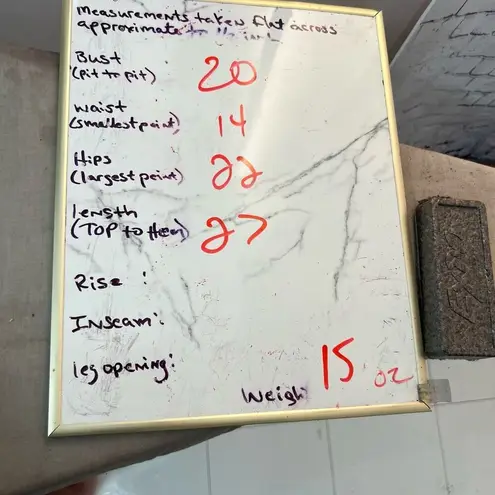 measurements taken flat across
approximate to
Bust
(pit to pit) 20
waist
(smallest point) 14
Hips
(largest point) 22
length
(TOP to Hem) 27
Rise :
Inseam:
leg opening:
Weigh 15 oz